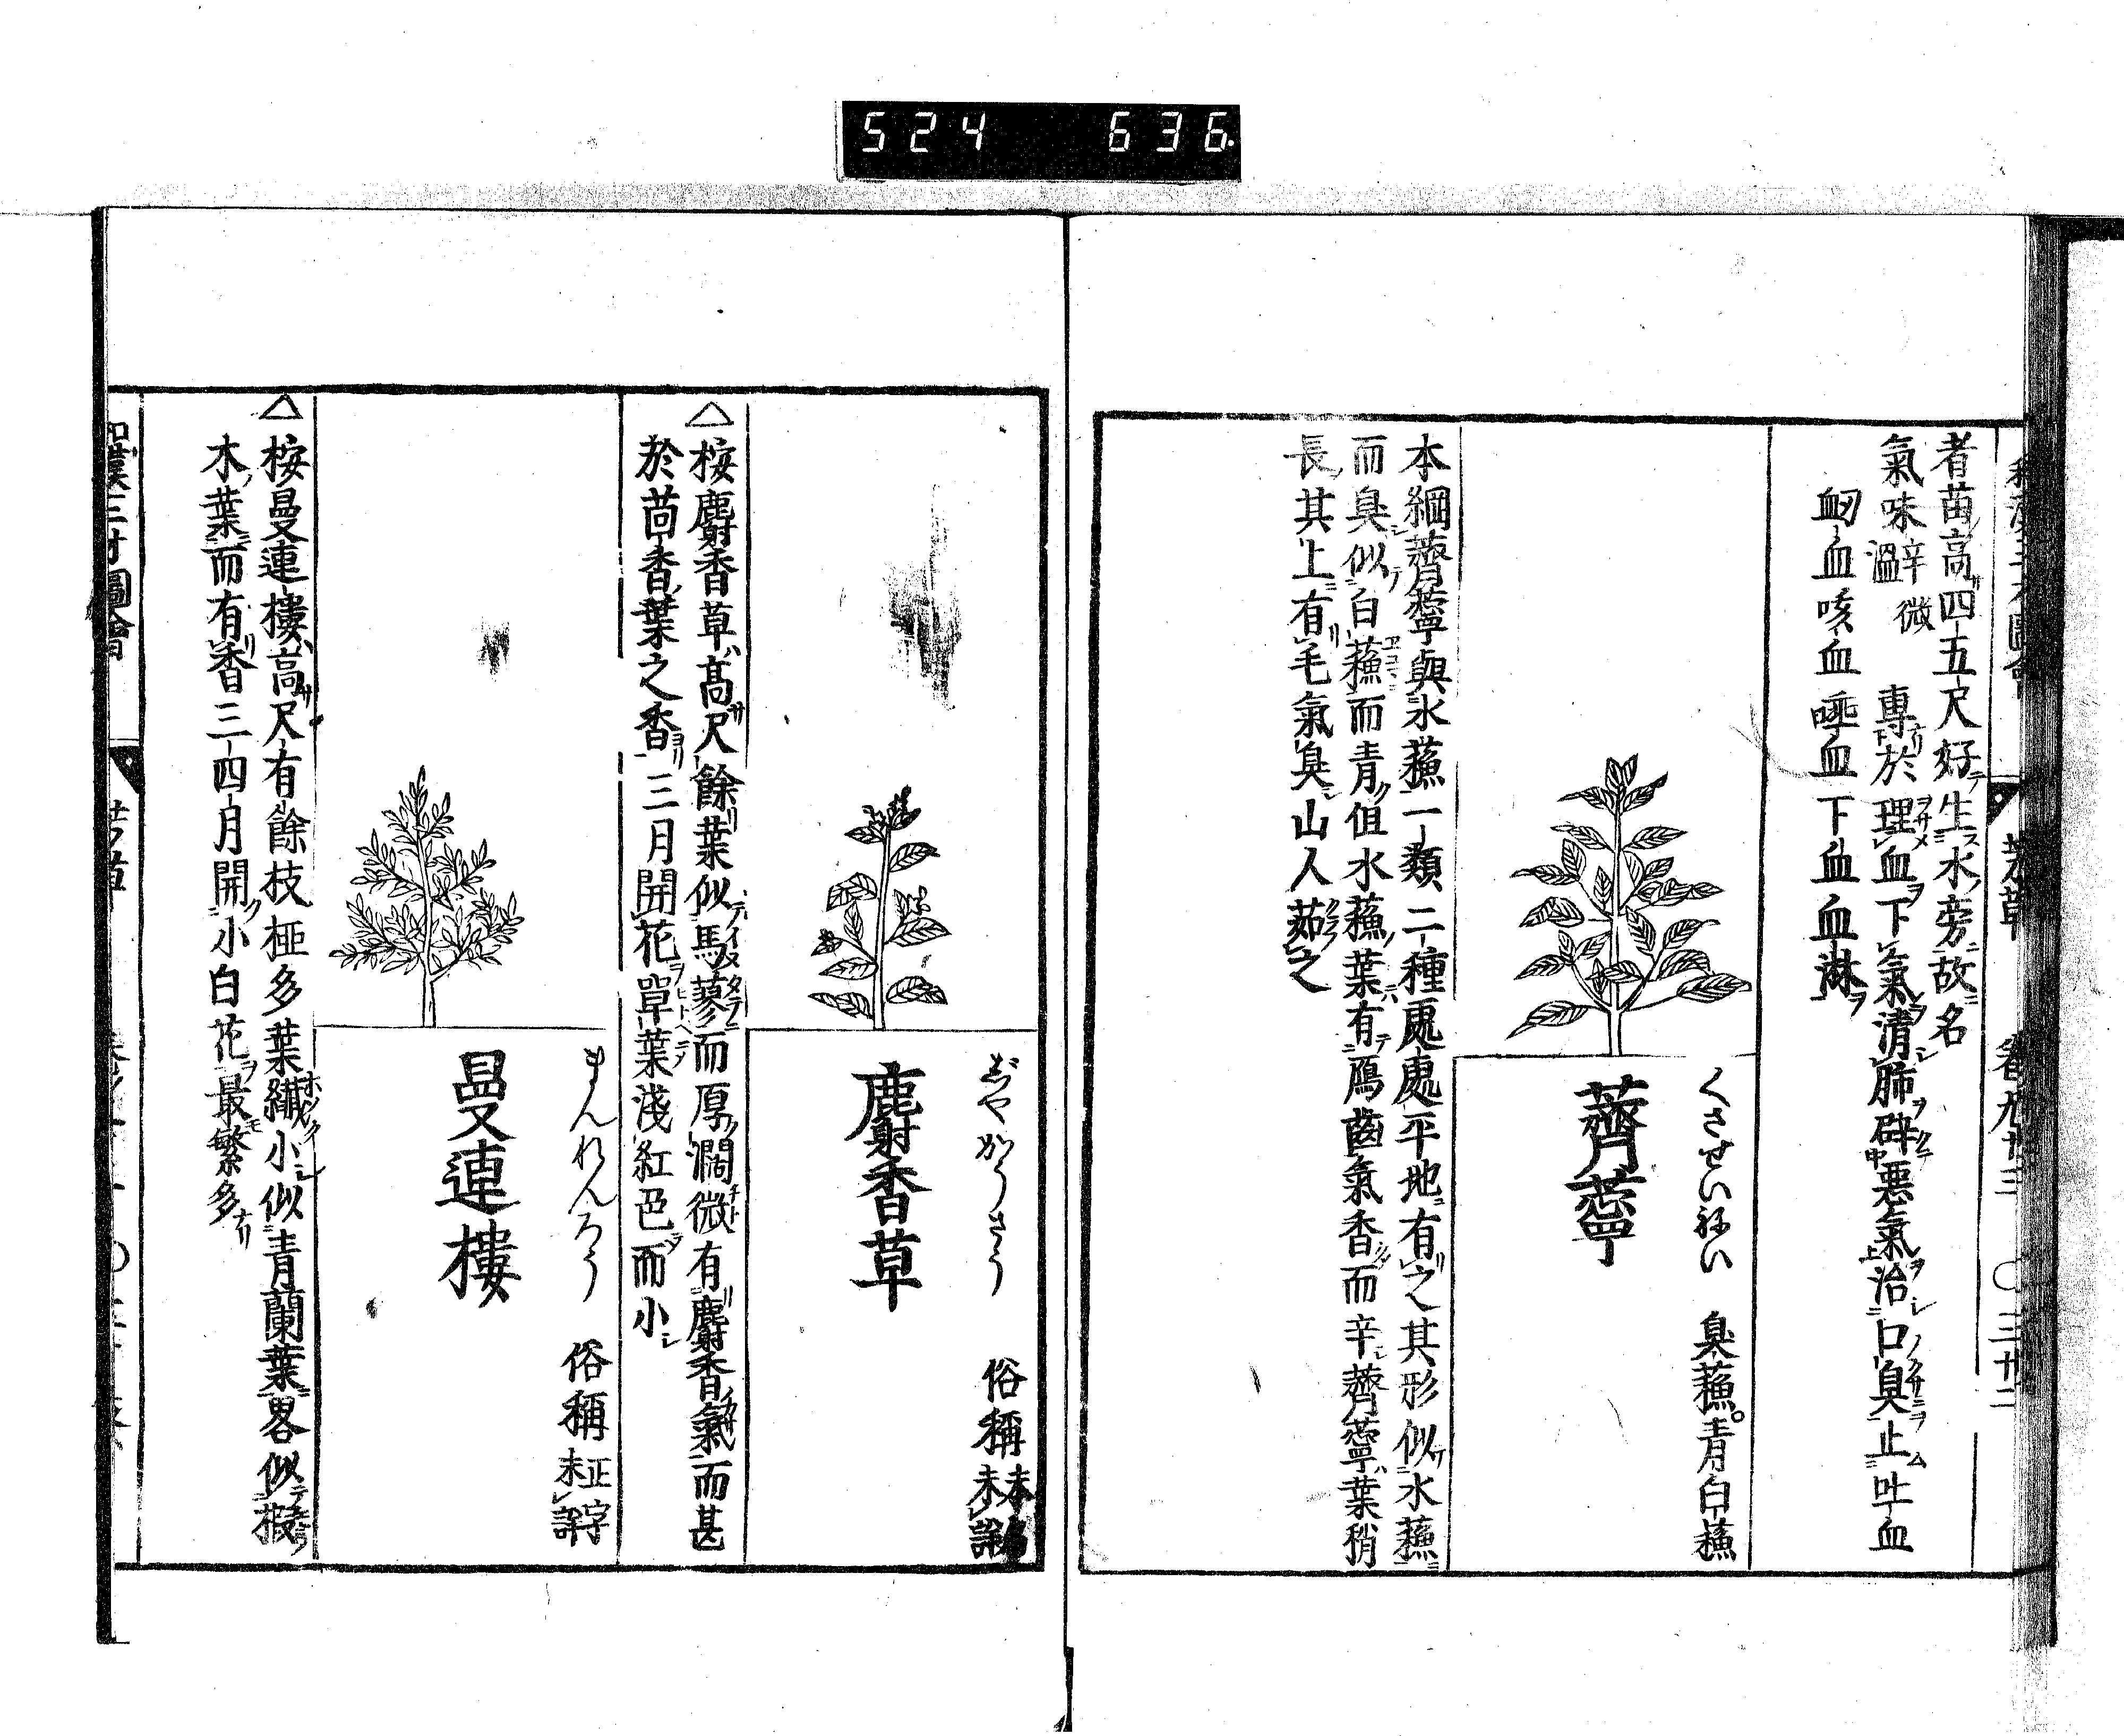 524 636
芳草
者苗高四五尺好生水旁故名
氣味辛微溫 專於理血下氣清肺辟惡氣治口臭止吐血
衂血咳血唾血下血血淋
くさせいねい 臭蘓 青白蘓
薺薴
本綱薺薴與水蘓一類二種處處平地有之其形似水蘓
而臭似白蘓而青但水蘓葉有鴈齒氣香而辛薺薴葉稍
長其上有毛氣臭山人茹之
じやかうさう 俗稱 本名未詳
麝香草
△桉麝香草高尺餘葉似馬蓼而厚濶微有麝香氣而甚
於茴香葉之香三月開花單葉淺紅色而小
まんれんろう 俗稱 正字未詳
曼連樓
△桉曼連樓高尺有餘枝椏多葉纎小似青蘭葉畧似椴
木葉而有香三四月開小白花最繁多
和漢三才圖會
芳草